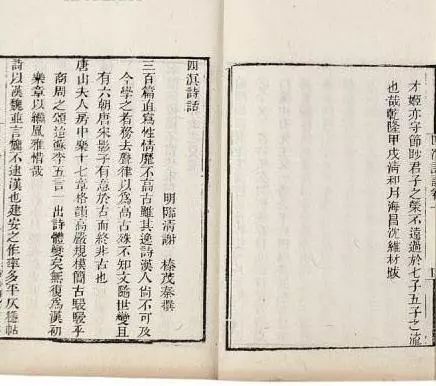 才姬亦守節眇君子之榮不遠過於七子五子之流
也哉乾隆甲戌清和月海昌沈維材跋
四溟詩話
明臨清謝 榛茂秦撰
三百篇直寫性情靡不高古雖其逸詩漢人尙不可及
今學之者務去聲律以爲高古殊不知文隨世變且
有六朝唐宋影子有意於古而終非古也
唐山夫人房中樂十七章格韻高嚴規模簡古駸駸乎
商周之頌迨蘇李五言一出詩體變矣無復爲漢初
樂章以繼風雅惜哉
詩以漢魏並言魏不逮漢也建安之作率多平仄穩帖